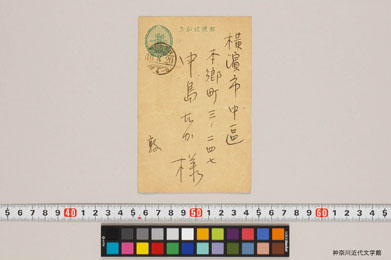 郵便はがき
横濱市中區
本郷町三ノ二四七
中島たか様
敦
5 6 7 8 9 40 1 2 3 4 5 6 7 8 9 50 1 2 3 4 5 6 7 8 9 60 1 2 3 4 5
神奈川近代文学館